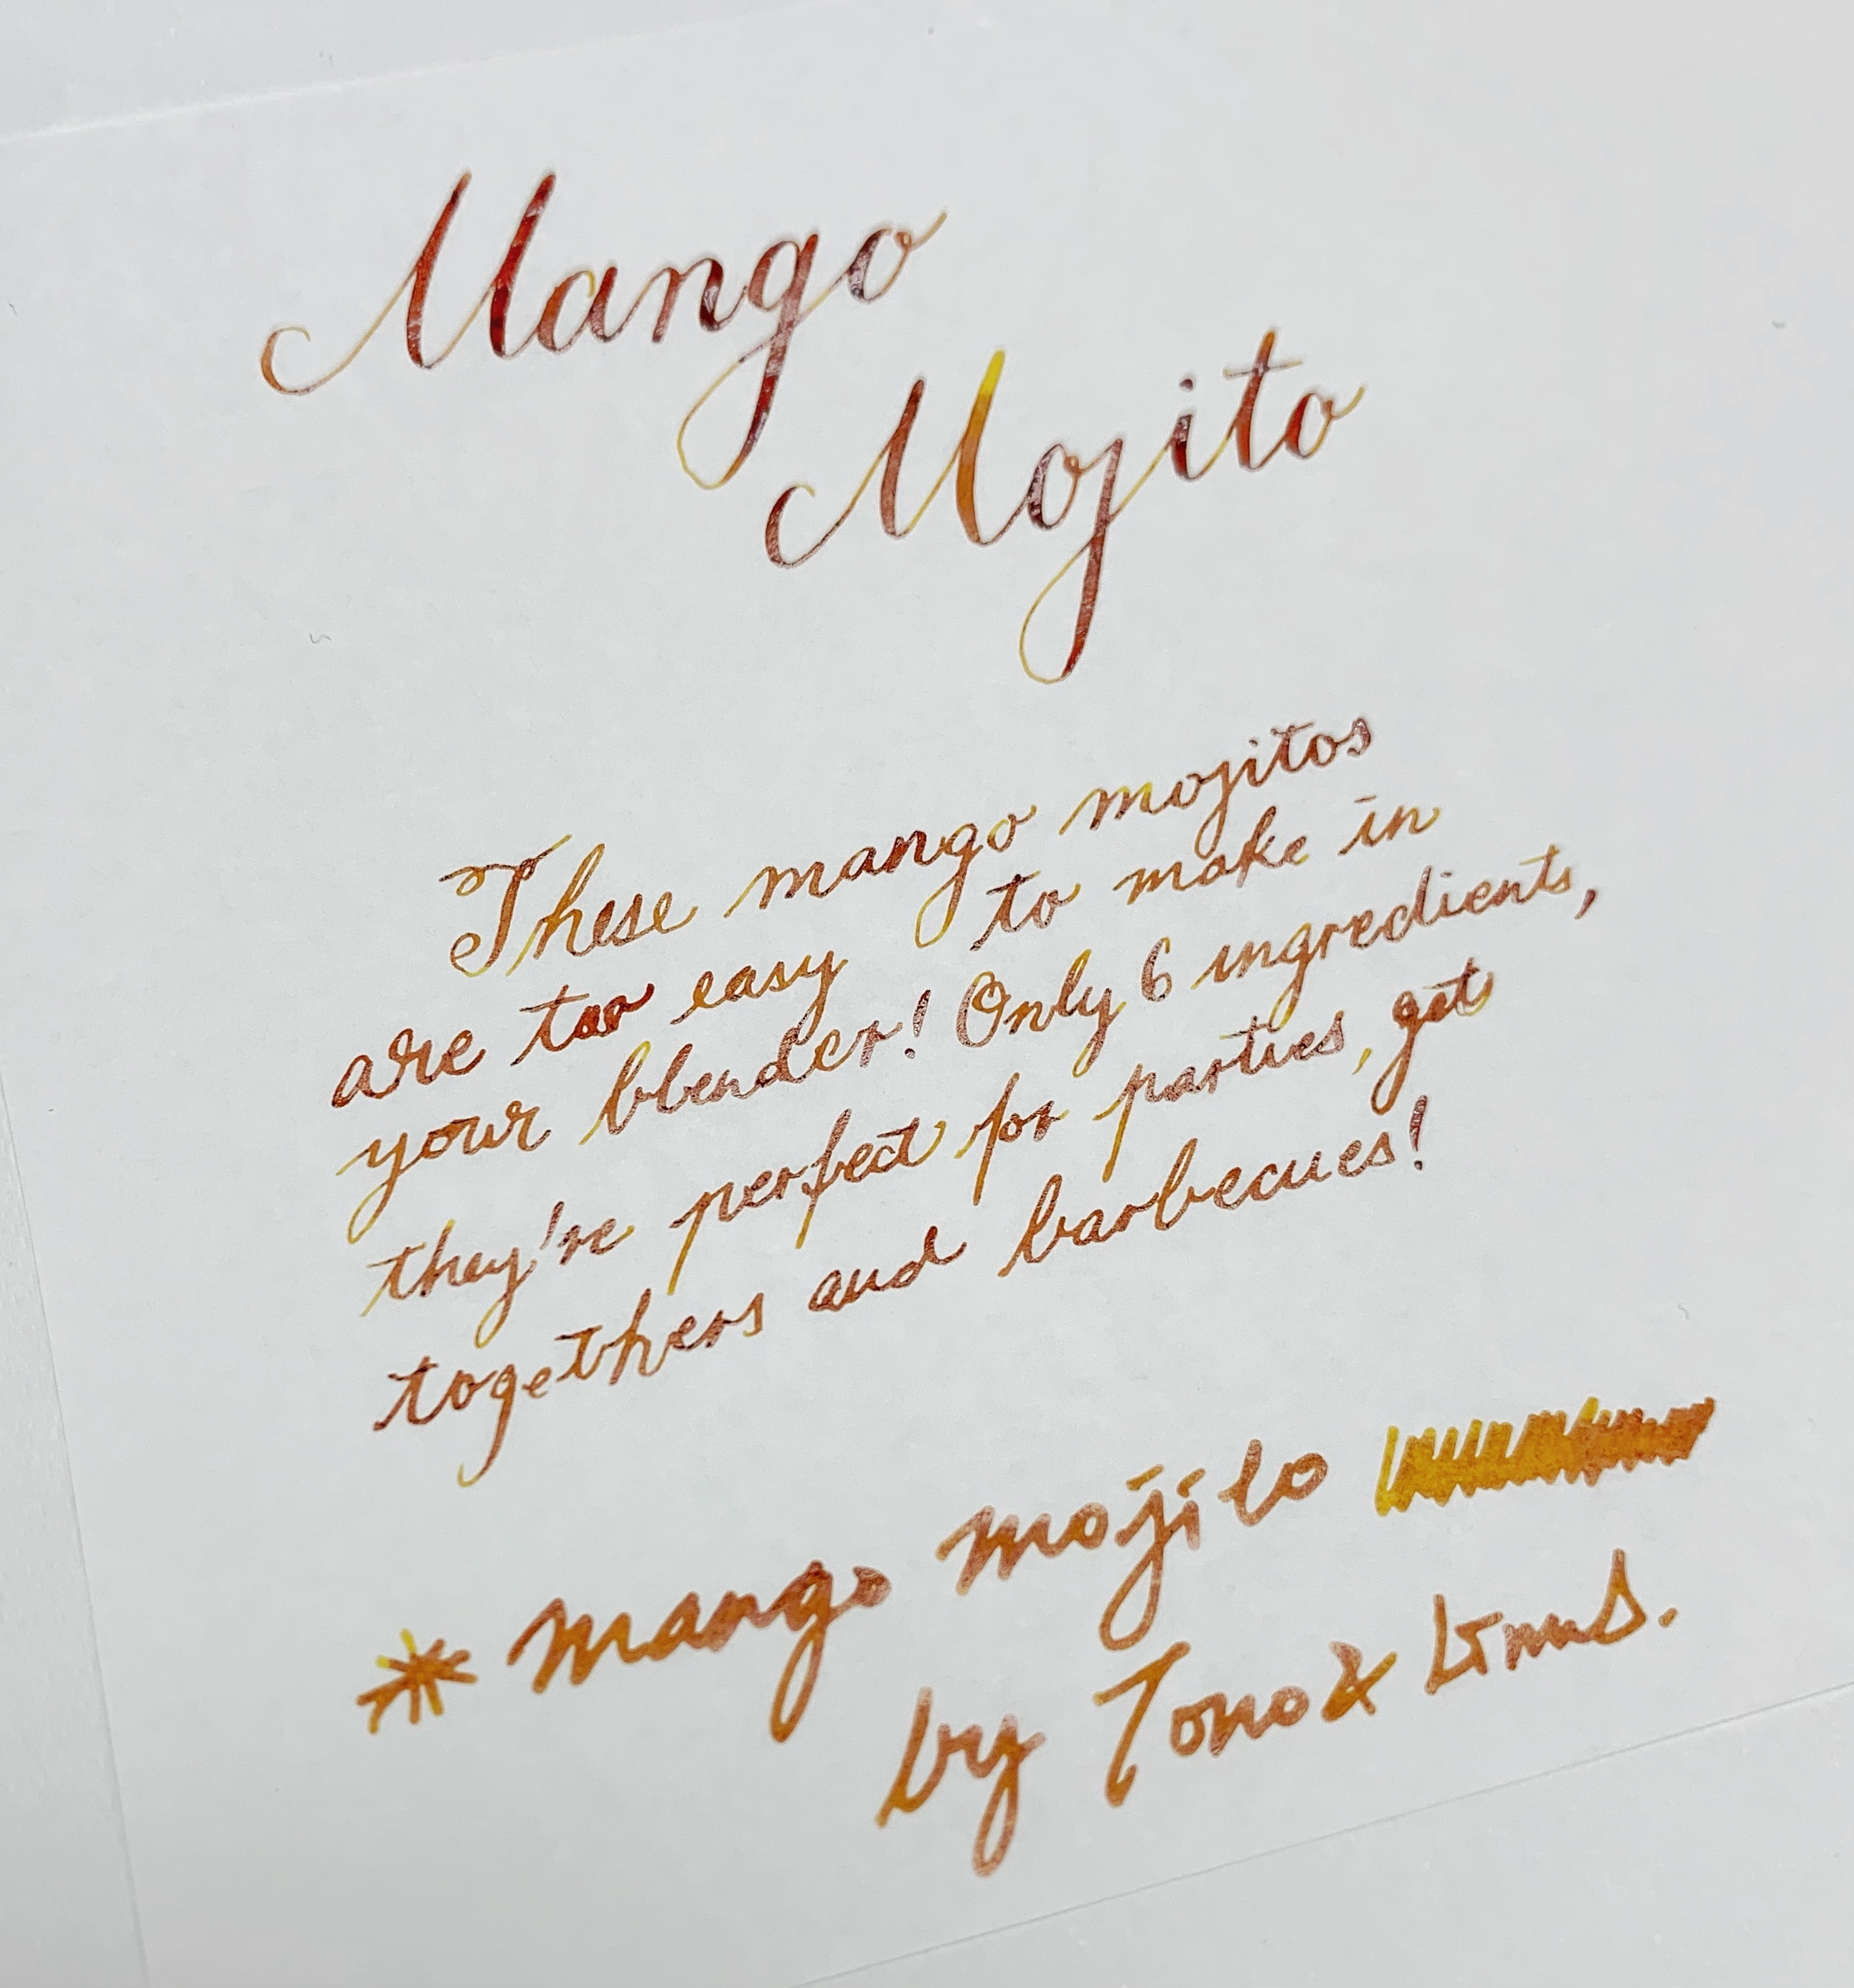 Mango
Mojito
These mango mojitos
are too easy to make in
your blender! Only 6 ingredients,
they're perfect for parties, get
togethers and barbecues!
* mango mojito
by Tono & Lims.